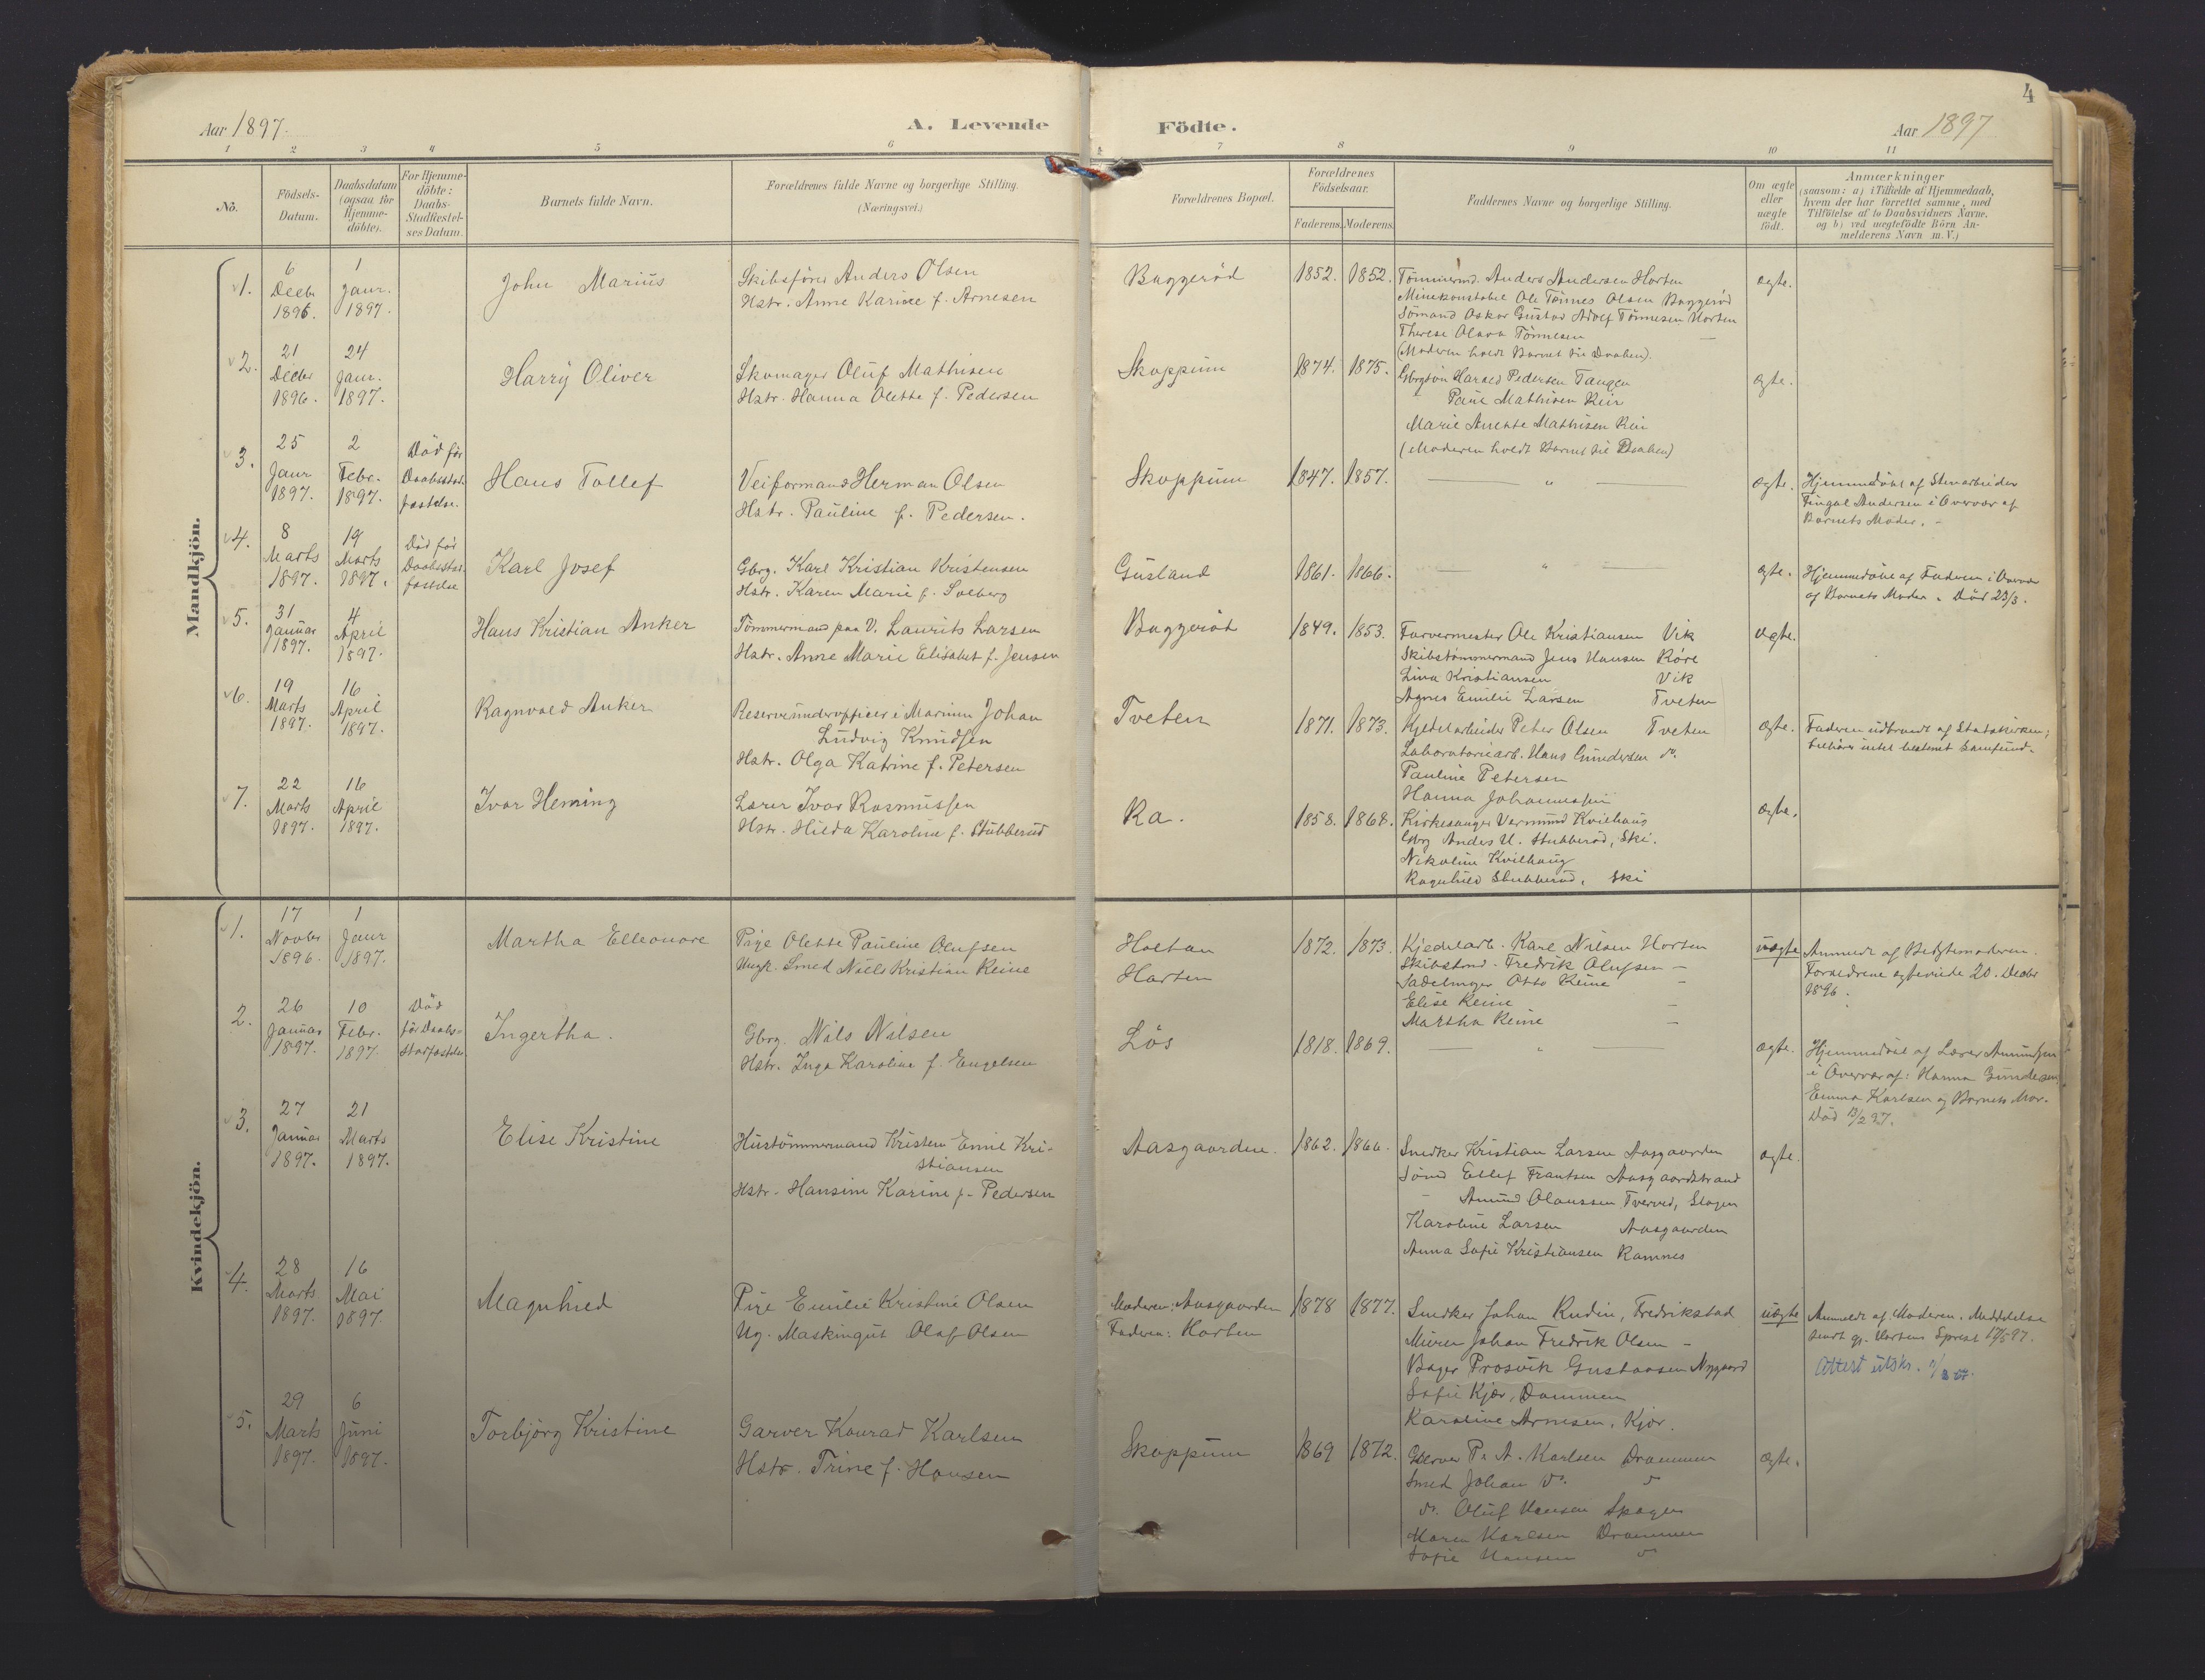 4
Aar 1897.
A. Levende
Födte.
Aar 1897
1 2 3 4 5 6 7 8 9 10 11
No.
Födsels-
Datum.
Daabsdatum
(ogsaa for
Hjemme-
döbte).
For Hjemme-
döbte:
Daabs-
Stadfæstel-
ses Datum.
Barnets fulde Navn.
Forældrenes fulde Navne og borgerlige Stilling.
(Næringsvei.)
Forældrenes Bopæl.
Forældrenes
Födselsaar.
Faderens. Moderens.
Faddernes Navne og borgerlige Stilling.
Om ægte
eller
uægte
födt.
Anmærkninger
(saasom: a) i Tilfælde af Hjemmedaab,
hvem der har forrettet samme, med
Tilföielse af to Daabsvidners Navne,
og b) ved uægtefödte Börn An-
melderens Navn m. V.)
Mandkjön.
1.
6
Decbr
1896.
1
Janr.
1897.
John Marius
Skibsförer Anders Olsen
Hstr. Anne Karine f. Arnesen
Baggeröd
1852. 1852.
Tömmermd. Anders Andersen Horten
Minekonstabel Ole Tönnes Olsen Baggeröd
Sömand Oskar Gustav Adolf Tönnesen Horten
Therese Olava Tönnesen —
(Moderen holdt Barnet til Daaben).
ægte.
2.
21
Decbr
1896.
24
Janr.
1897.
Harry Oliver
Skomager Oluf Mathisen
Hstr. Hanna Olette f. Pedersen
Skoppum
1874. 1875.
Gbrgsön Harald Pedersen Tangen
Paul Mathisen Reir
Marie Anette Mathisen Reir
(Moderen holdt Barnet til Daaben)
ægte.
3.
25
Janr
1897.
2
Febr.
1897.
Död för
Daabsstad-
fæstelse.
Hans Tollef
Veiformand Herman Olsen
Hstr. Pauline f. Pedersen.
Skoppum
1847. 1857.
— " —
ægte.
Hjemmedöbt af Stenarbeider
Fingal Andersen i Overvær af
Barnets Moder. -
4.
8
Marts
1897.
19
Marts
1897.
Död för
Daabsstad-
fæstelse
Karl Josef
Gbrg. Karl Kristian Kristensen
Hstr. Karen Marie f. Solberg
Gusland
1861. 1866.
— " —
ægte.
Hjemmedöbt af Faderen i Overvær
af Barnets Moder. Död 23/3.
5.
31
Januar
1897.
4
April
1897.
Hans Kristian Anker
Tömmermand paa V. Laurits Larsen
Hstr. Anne Marie Elisabet f. Jensen
Baggeröd
1849. 1853.
Farvermester Ole Kristiansen Vik
Skibstömmermand Jens Hansen Röre
Lina Kristiansen Vik
Agnes Emilie Larsen Tveten
ægte.
6.
19
Marts
1897.
16
April
1897.
Ragnvald Anker
Reserveunderofficer i Marinen Johan
Ludvig Knudsen
Hstr. Olga Katrine f. Petersen
Tveten
1871. 1873.
Kjedelarbeider Peter Olsen Tveten
Laboratoriearb. Hans Gundersen do.
Pauline Petersen
Hanna Johannessen
ægte.
Faderen udtraadt af Statskirken;
tilhörer intet bestemt Samfund.
7.
22
Marts
1897.
16
April
1897.
Ivar Heming
Lærer Ivar Rasmussen
Hstr. Hilda Karoline f. Stubberud
Ra.
1858. 1868.
Kirkesanger Vermund Kvilhaug
Gbrg Anders H. Stubberud, Ski.
Nikoline Kvilhaug
Ragnhild Stubberud, Ski
ægte.
Kvindekjön.
1.
17
Novbr
1896.
1
Janr
1897.
Martha Elleonore
Pige Olette Pauline Olufsen
Ungk. Smed Niels Kristian Reine
Holtan
Horten
1872. 1873.
Kjedelarb. Karl Nilsen Horten
Skibstmd. Fredrik Olufsen —
Sadelmager Otto Reine —
Elise Reine —
Martha Reine —
uægte
Anmeldt af Bedstemoderen.
Forældrene egteviede 20. Decbr
1896.
2.
26
Januar
1897.
10
Febr.
1897.
Död
för Daabs-
stadfæstelse
Ingertha.
Gbrg. Nils Nilsen
Hstr. Inga Karoline f. Engelsen
Lös
1818. 1869.
— " —
ægte.
Hjemmedöbt af Lærer Amundsen
i Overvær af: Hanna Gundersen,
Emma Karlsen og Barnets Mor.
Död 13/2 97.
3.
27
Januar
1897.
21
Marts
1897.
Elise Kristine
Hustömmermand Kristen Emil Kri-
stiansen
Hstr. Hansine Karine f. Pedersen
Aasgaarden.
1862. 1866.
Snedker Kristian Larsen Aasgaarden
Sömd Ellef Frantsen Aasgaardstrand
— Amund Olaussen Tverved, Slagen
Karoline Larsen Aasgaarden
Anna Sofie Kristiansen Ramnes
ægte.
4.
28
Marts
1897.
16
Mai
1897.
Magnhild
Pige Emilie Kristine Olsen
Ug. Maskingut Olaf Olsen
Moderen: Aasgaarden
Faderen: Horten
1878 1877.
Snedker Johan Rudin, Fredrikstad
Murer Johan Fredrik Olsen —
Bager Prosvik Gustavsen Nygaard
Sofie Kjær, Dammen
Karoline Arnesen, Kjær.
uægte
Anmeldt af Moderen. Meddelelse
sendt gj. Hortens Sprest 17/5 97.
Attest utskr.
5.
29
Marts
1897.
6
Juni
1897.
Torbjörg Kristine
Garver Konrad Karlsen
Hstr. Trine f. Hansen
Skoppum
1869 1872.
Garver P. A. Karlsen Drammen
Smed Johan do. "
do. Oluf Hansen
Maren Karlsen Drammen
Sofie Hansen "
ægte.